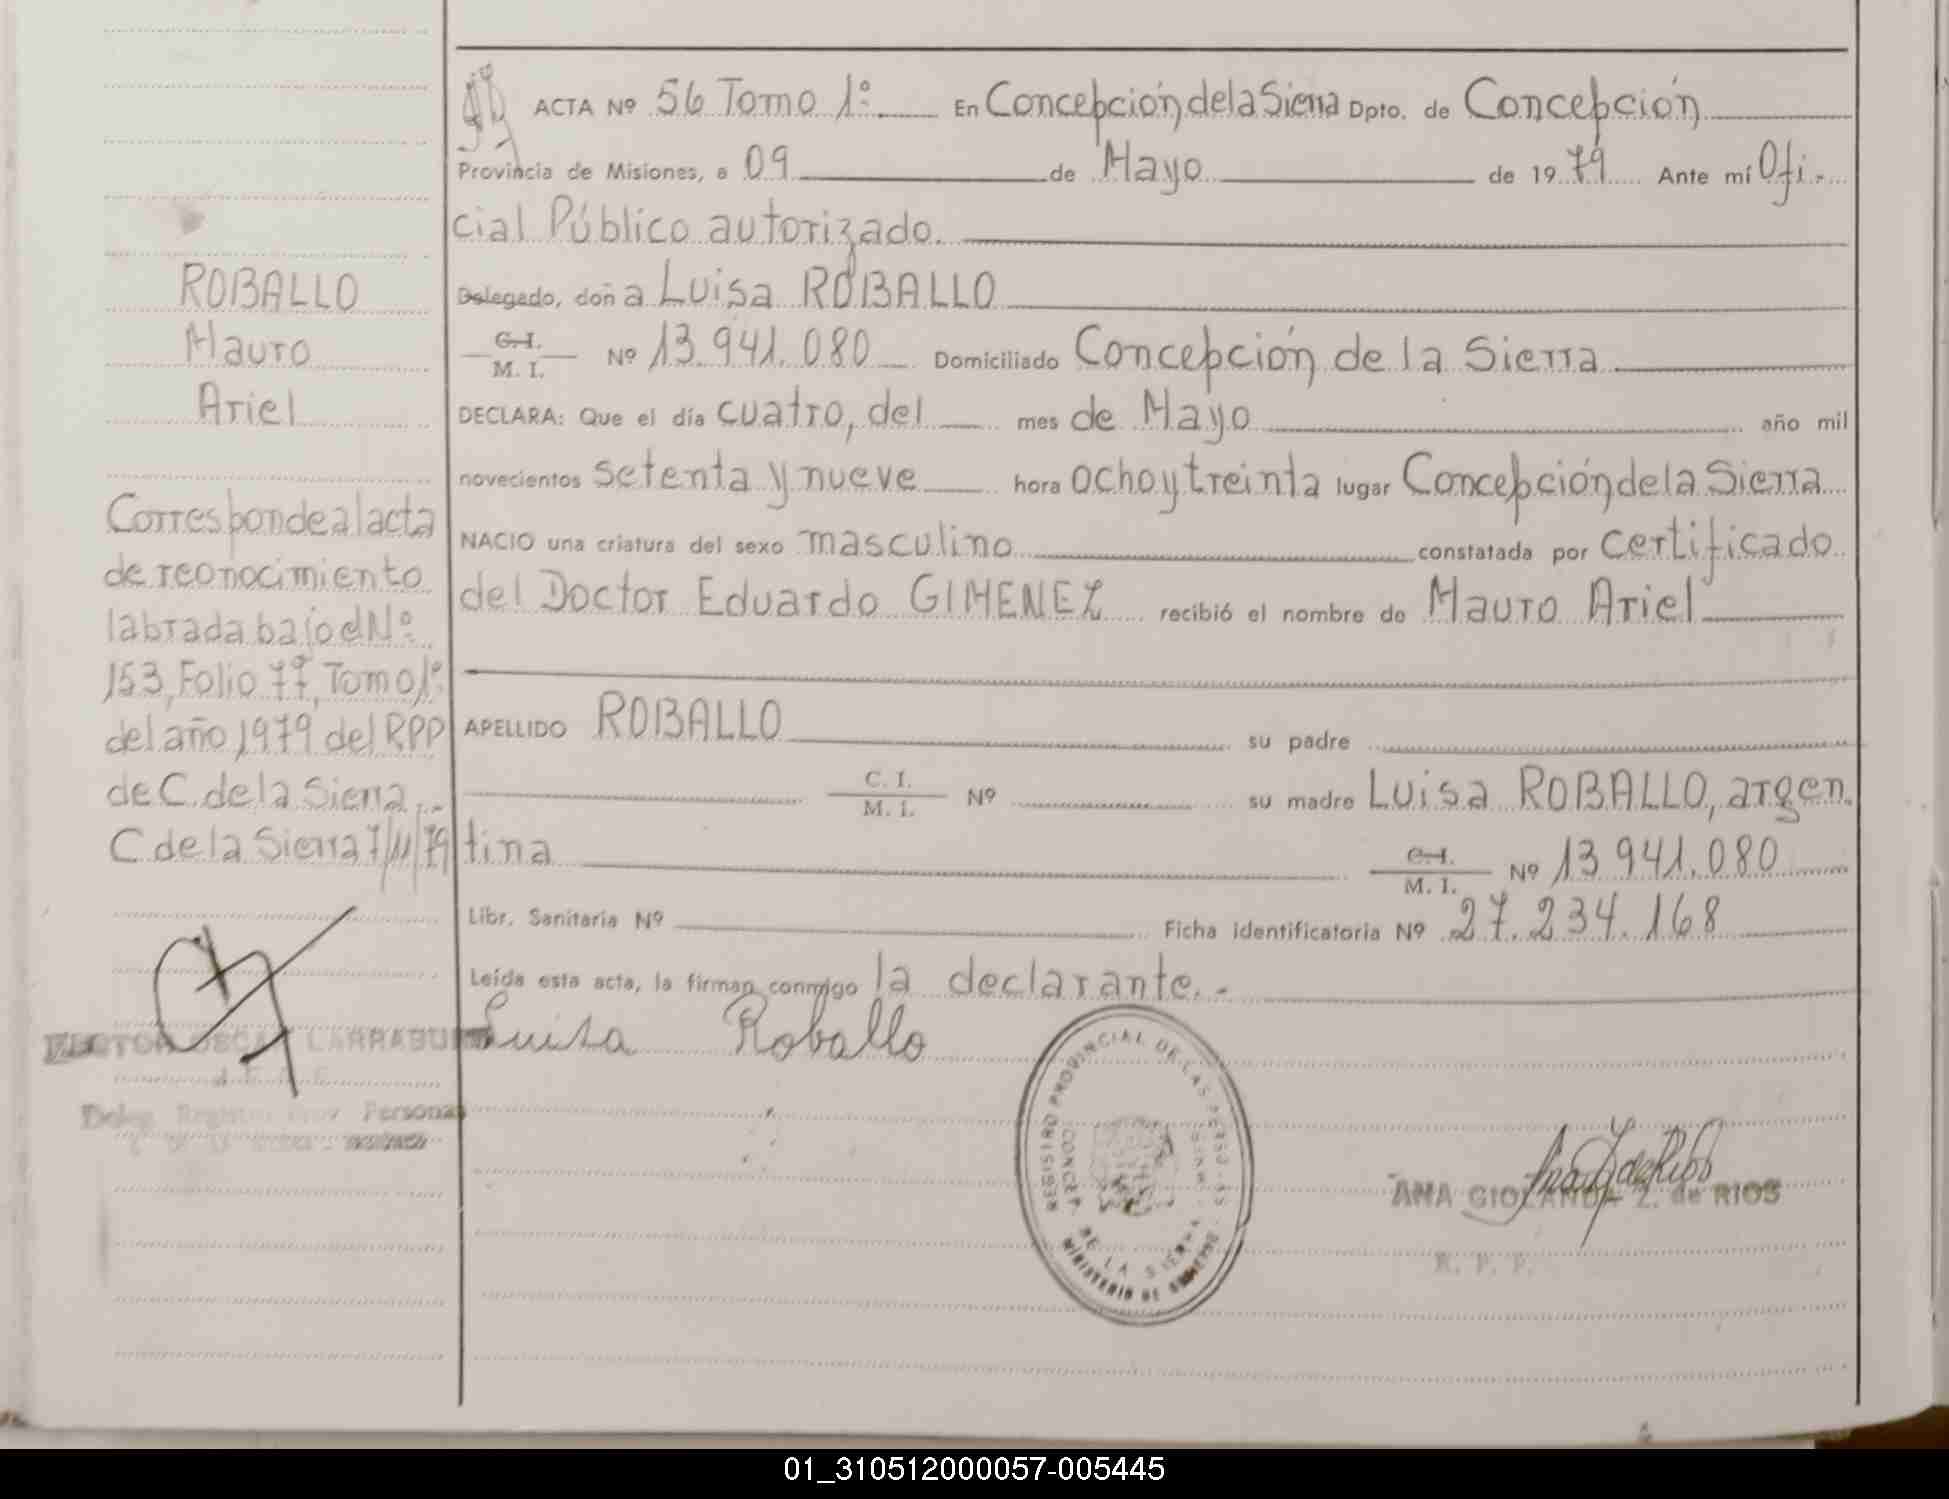 ACTA Nº 56 Tomo 1º. En Concepción de la Sierra Dpto. de Concepción
Provincia de Misiones, a 09 de Mayo de 1979 Ante mí Ofi-
cial Público autorizado.
Delegado, doña Luisa ROBALLO
C.I. M. I. Nº 13.941.080 Domiciliado Concepción de la Sierra
DECLARA: Que el día cuatro, del mes de Mayo año mil
novecientos setenta y nueve hora ocho y treinta lugar Concepción de la Sierra
NACIO una criatura del sexo masculino constatada por certificado
del Doctor Eduardo GIMENEZ recibió el nombre de Mauro Ariel
APELLIDO ROBALLO su padre
C. I. M. I. Nº su madre Luisa ROBALLO, argen.
tina C.I. M. I. Nº 13.941.080
Libr. Sanitaria Nº Ficha identificatoria Nº 27.234.168
Leída esta acta, la firman conmigo la declarante.-
Luisa Roballo
ROBALLO
Mauro
Ariel
Corresponde al acta
de reonocimiento
labrada bajo el Nº
153, Folio 77º, Tomo 1º
del año 1979 del RPP
de C. de la Sierra.-
C de la Sierra 7/11/79
OSCAR LARRABU
Deleg. Registro Prov Personas
REGISTRO PROVINCIAL DE LAS PERSONAS
CONCEP. DE LA SIERRA
MINISTERIO DE GOBIERNO
ANA GIOLANDA Z. de RIOS
R. P. P.
01_310512000057-005445